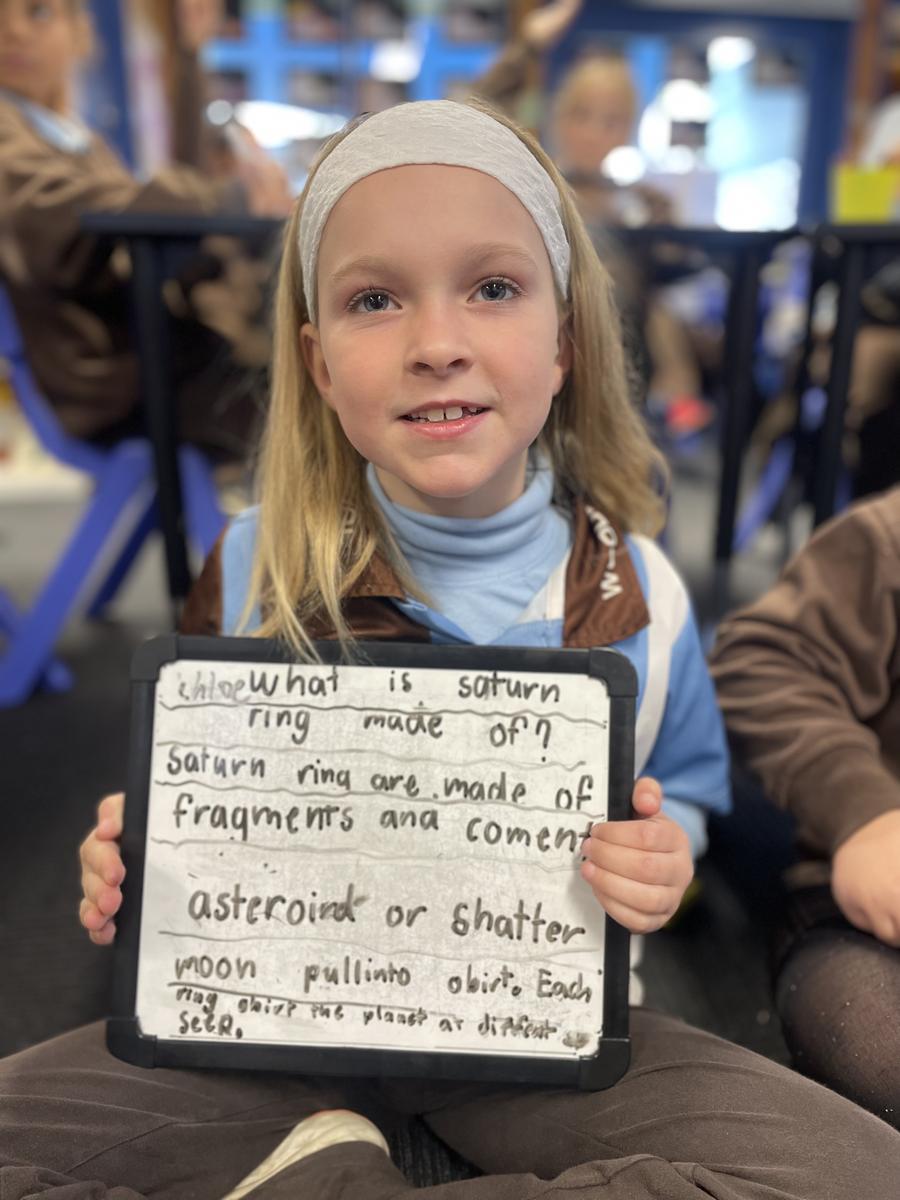 chloe What is saturn
ring made of?
saturn ring are made of
fragments and coment
asteroird or shatter
moon pullinto obirt. Each
ring obirt the planet at diffent